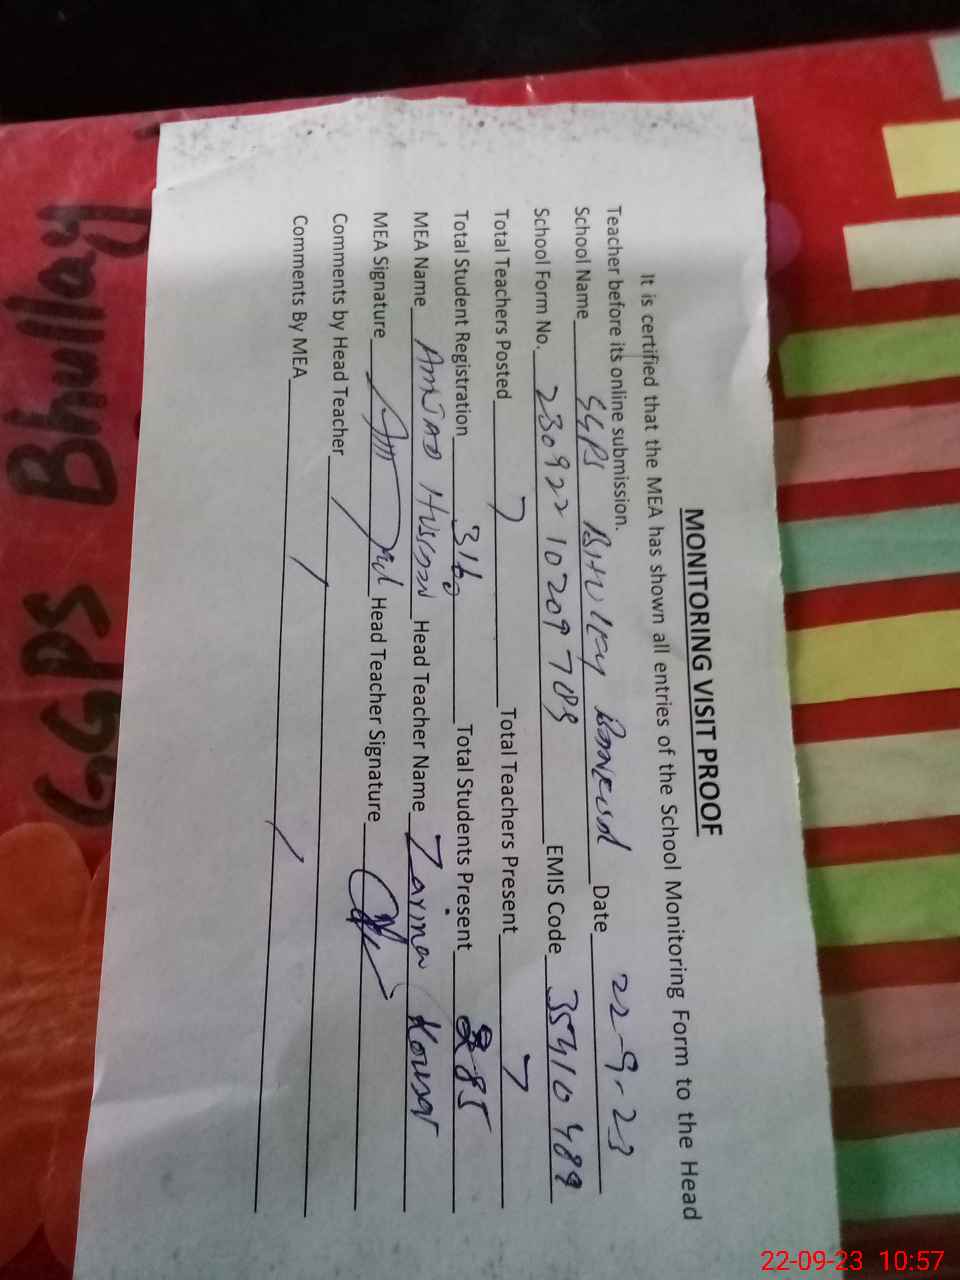 MONITORING VISIT PROOF
It is certified that the MEA has shown all entries of the School Monitoring Form to the Head
Teacher before its online submission.
School Name GGPS Date 22-9-23
School Form No. 23092210209789 EMIS Code 35410489
Total Teachers Posted 7 Total Teachers Present 7
Total Student Registration 316 Total Students Present 285
MEA Name AMJAD Hussain Head Teacher Name Zarina Kousar
MEA Signature Head Teacher Signature
Comments by Head Teacher
Comments By MEA
GGPS Bhullay
22-09-23 10:57